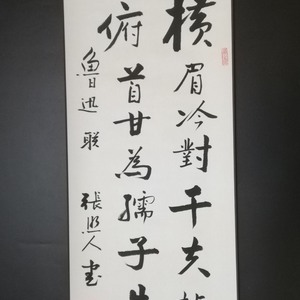 横眉冷對千夫指
俯首甘為孺子牛
魯迅聯 張照人書